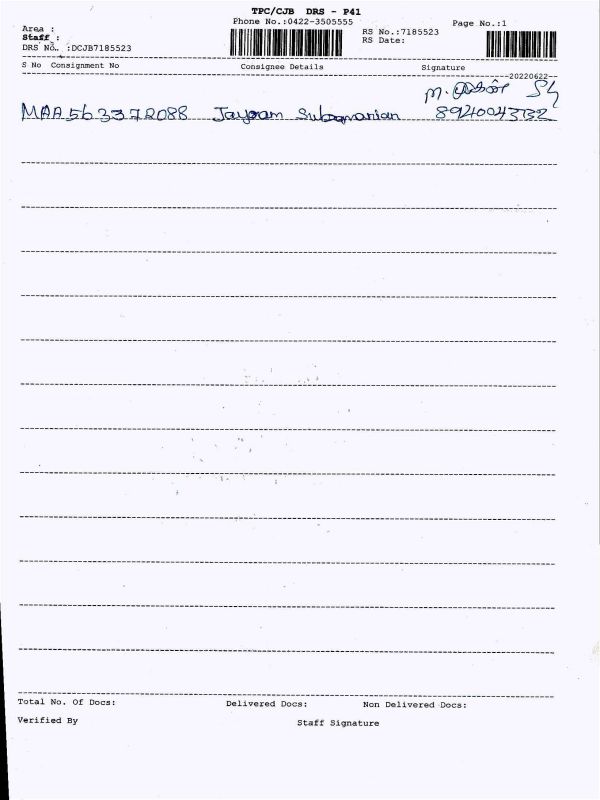 TPC/CJB DRS - P41
Area : Phone No.:0422-3505555 Page No.:1
Staff : RS No.:7185523
DRS No. :DCJB7185523 RS Date:
S No Consignment No Consignee Details Signature
20220622
MAA563372088 Jayram Subramanian
Total No. Of Docs: Delivered Docs: Non Delivered Docs:
Verified By Staff Signature